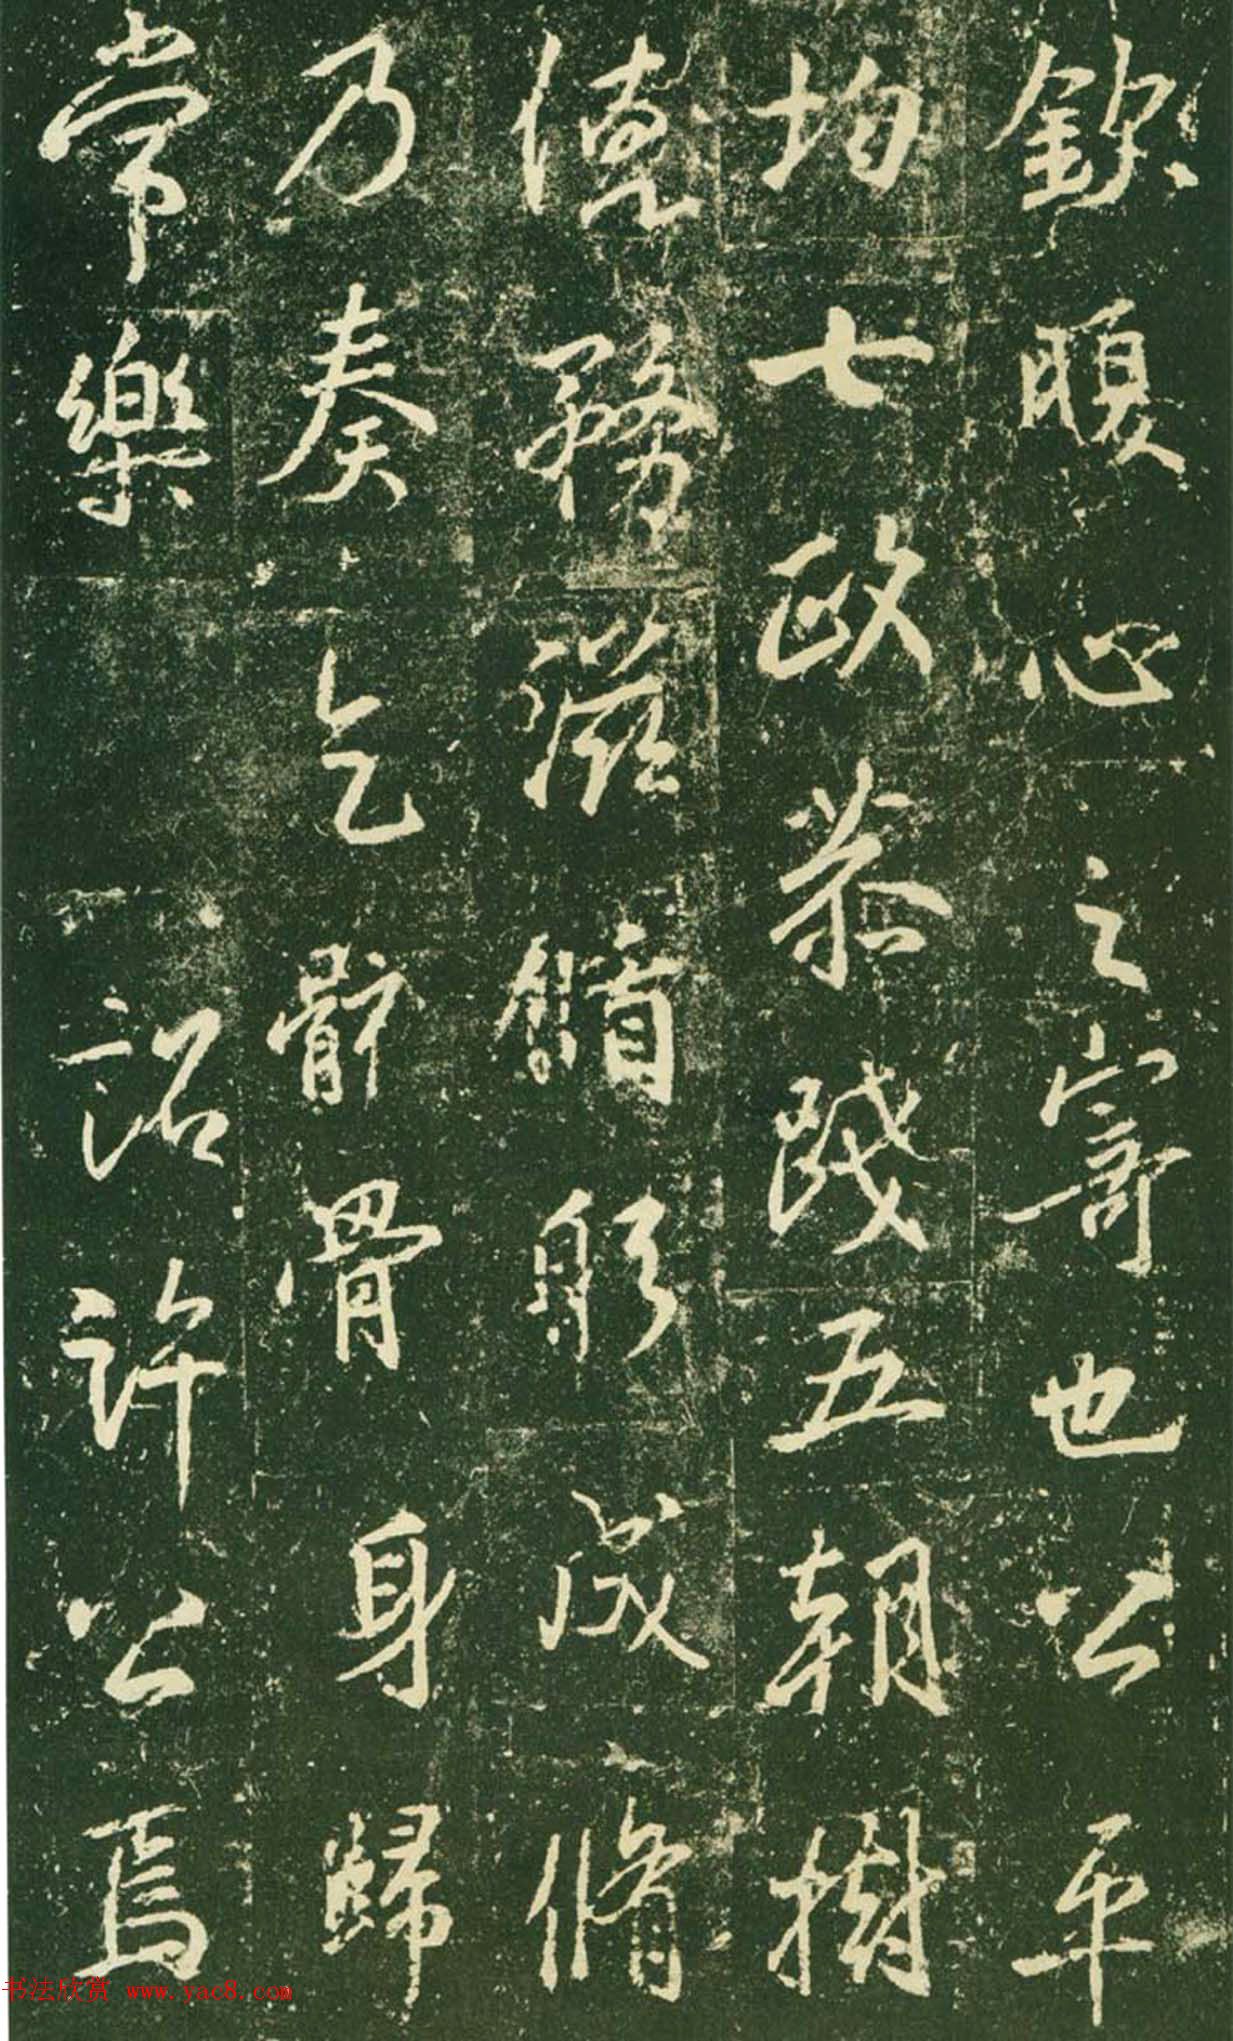 欽腹心之寄也公平
均七政恭踐五朝樹
德務滋躬成脩
乃奏乞骸骨身歸
常樂詔許公焉
书法欣赏 www.yac8.com